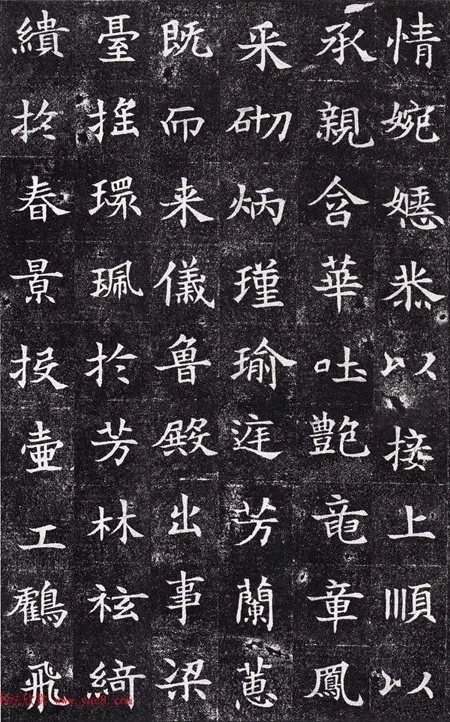 情婉嫕恭以接上順以
承親含華吐艷竜章鳳
采砌炳瑾瑜庭芳蘭蕙
既而来儀魯殿出事梁
臺搖環珮於芳林袨綺
繢於春景投壷工鶴飛